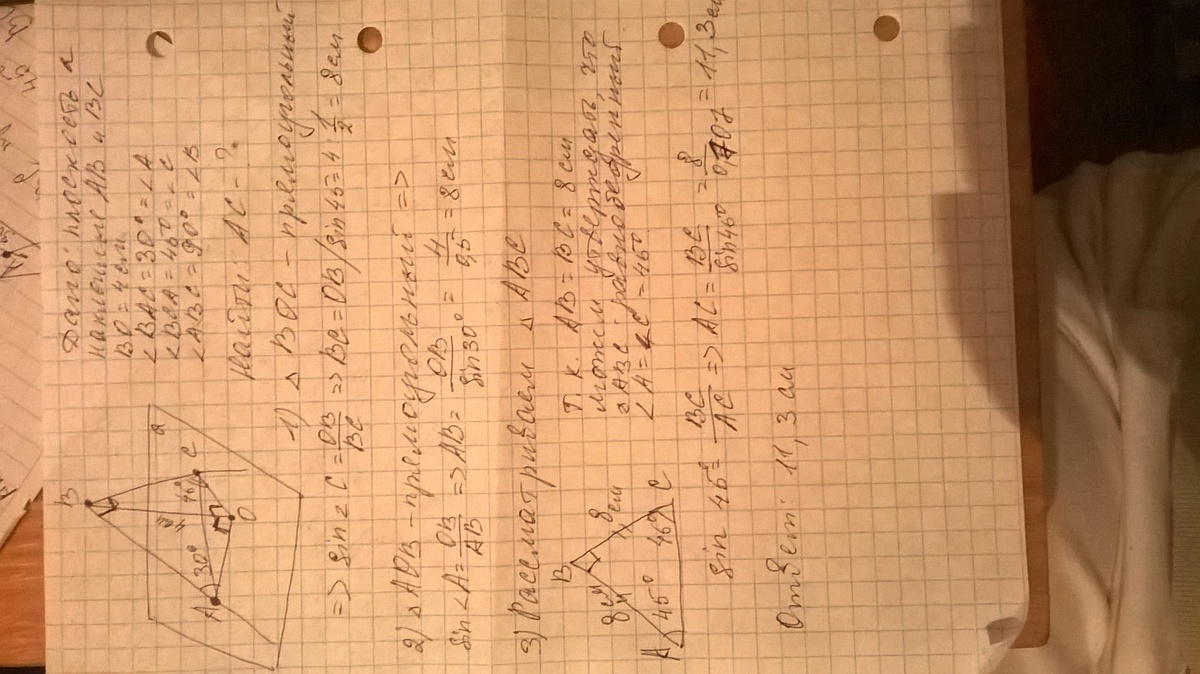 Дано: плоскость α
наклонные AB и BC
BO = 4 см
∠BAC = 30° = ∠A
∠BCA = 45° = ∠C
∠ABC = 90° = ∠B
Найти: AC - ?
B
α
A 30° 45° C
O
1) △ BOC - прямоугольный
=> sin ∠C = OB/BC => BC = OB/sin 45 = 4 · 1/2 = 8 см
2) △ AOB - прямоугольный =>
sin ∠A = OB/AB => AB = OB/sin 30° = 4/0,5 = 8 см
3) Рассматриваем △ ABC
B
8 см 8 см
A 45° 45° C
Т. к. AB = BC = 8 см
можем утверждать, что
△ ABC равнобедренный.
∠A = ∠C = 45°
sin 45° = BC/AC => AC = BC/sin 45° = 8/0,707 = 11,3 см
Ответ: 11,3 см